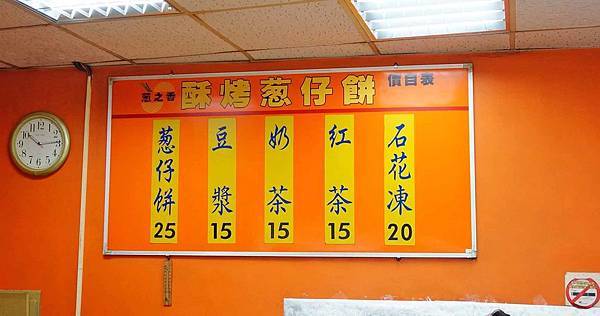 葱之香
酥烤葱仔餅
價目表
葱仔餅 25
豆漿 15
奶茶 15
紅茶 15
石花凍 20